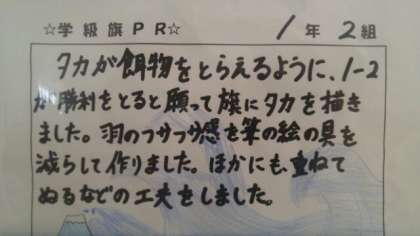 ☆学級旗PR☆ 1年2組
タカが餌物をとらえるように、1-2
が勝利をとると願って旗にタカを描き
ました。羽のフサフサ感を筆の絵の具を
減らして作りました。ほかにも、重ねて
ぬるなどの工夫をしました。